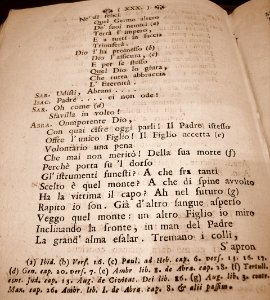 ( XXX. )
Ne' dì felici
Quel Germe altero
De' suoi nemici (a)
Terrà l'impero,
E a tutti in faccia
Trionferà.
Dio l'ha promesso (b)
Dio l'assicura, (c)
E per se stesso
Quel Dio lo giura,
Che tutta abbraccia
L'Eternità.
SAR. Udisti, Abram ....
ISAC. Padre .... ei non ode!
SAR. Oh come (d)
Sfavilla in volto!
ABRA. Omnipotente Dio,
Con quai cifre oggi parli! Il Padre istesso
Offre l'unico Figlio! Il Figlio accetta (e)
Volontario una pena
Che mai non meritò! Della sua morte (f)
Perchè porta su 'l dorso
Gl'istrumenti funesti? A che fra tanti
Scelto è quel monte? A che di spine avvolto
Ha la vittima il capo? Ah nel futuro (g)
Rapito io son. Già d'altro sangue asperso
Veggo quel monte: un altro Figlio io miro
Inclinando la fronte, in man del Padre
La grand' alma esalar. Tremano i colli,
S'apron
(a) Ibid. (b) Vers. 16. (c) Paul. ad Heb. cap. 6. vers. 13. 16. 17.
(d) Gen. cap. 20. vers. 7. (e) Ambr lib. 8. de Abra. cap. 18. (f) Tertull.
cont. Jud. cap. 13. Aug. de Civitat. Dei lib. 16. (g) Aug. lib. 3. cont.
Max. cap. 26. Ambr. lib. I. de Abra. cap. 8. & alii passim.